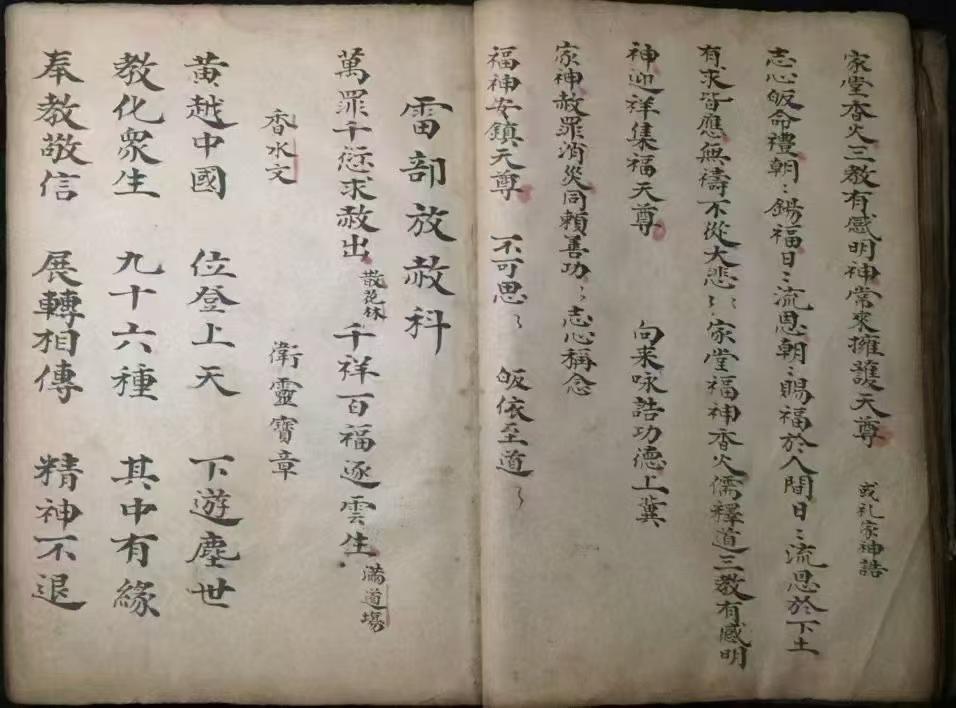 家堂香火三教有感明神常來擁護天尊 或礼家神誥
志心皈命禮朝〻錫福日〻流恩朝〻賜福於人間日〻流恩於下土
有求皆應無禱不從大悲〻〻家堂福神香火儒釋道三教有感明
神迎祥集福天尊 向來咏誥功德上冀
家神赦罪消災同賴善功〻志心稱念
福神安鎮天尊 不可思〻 皈依至道〻
雷部放赦科
萬罪千愆求赦出 散花林 千祥百福逐雲生 滿道場
香水文 衛靈寶章
黃越中國 位登上天 下遊塵世
教化衆生 九十六種 其中有緣
奉教敬信 展轉相傳 精神不退